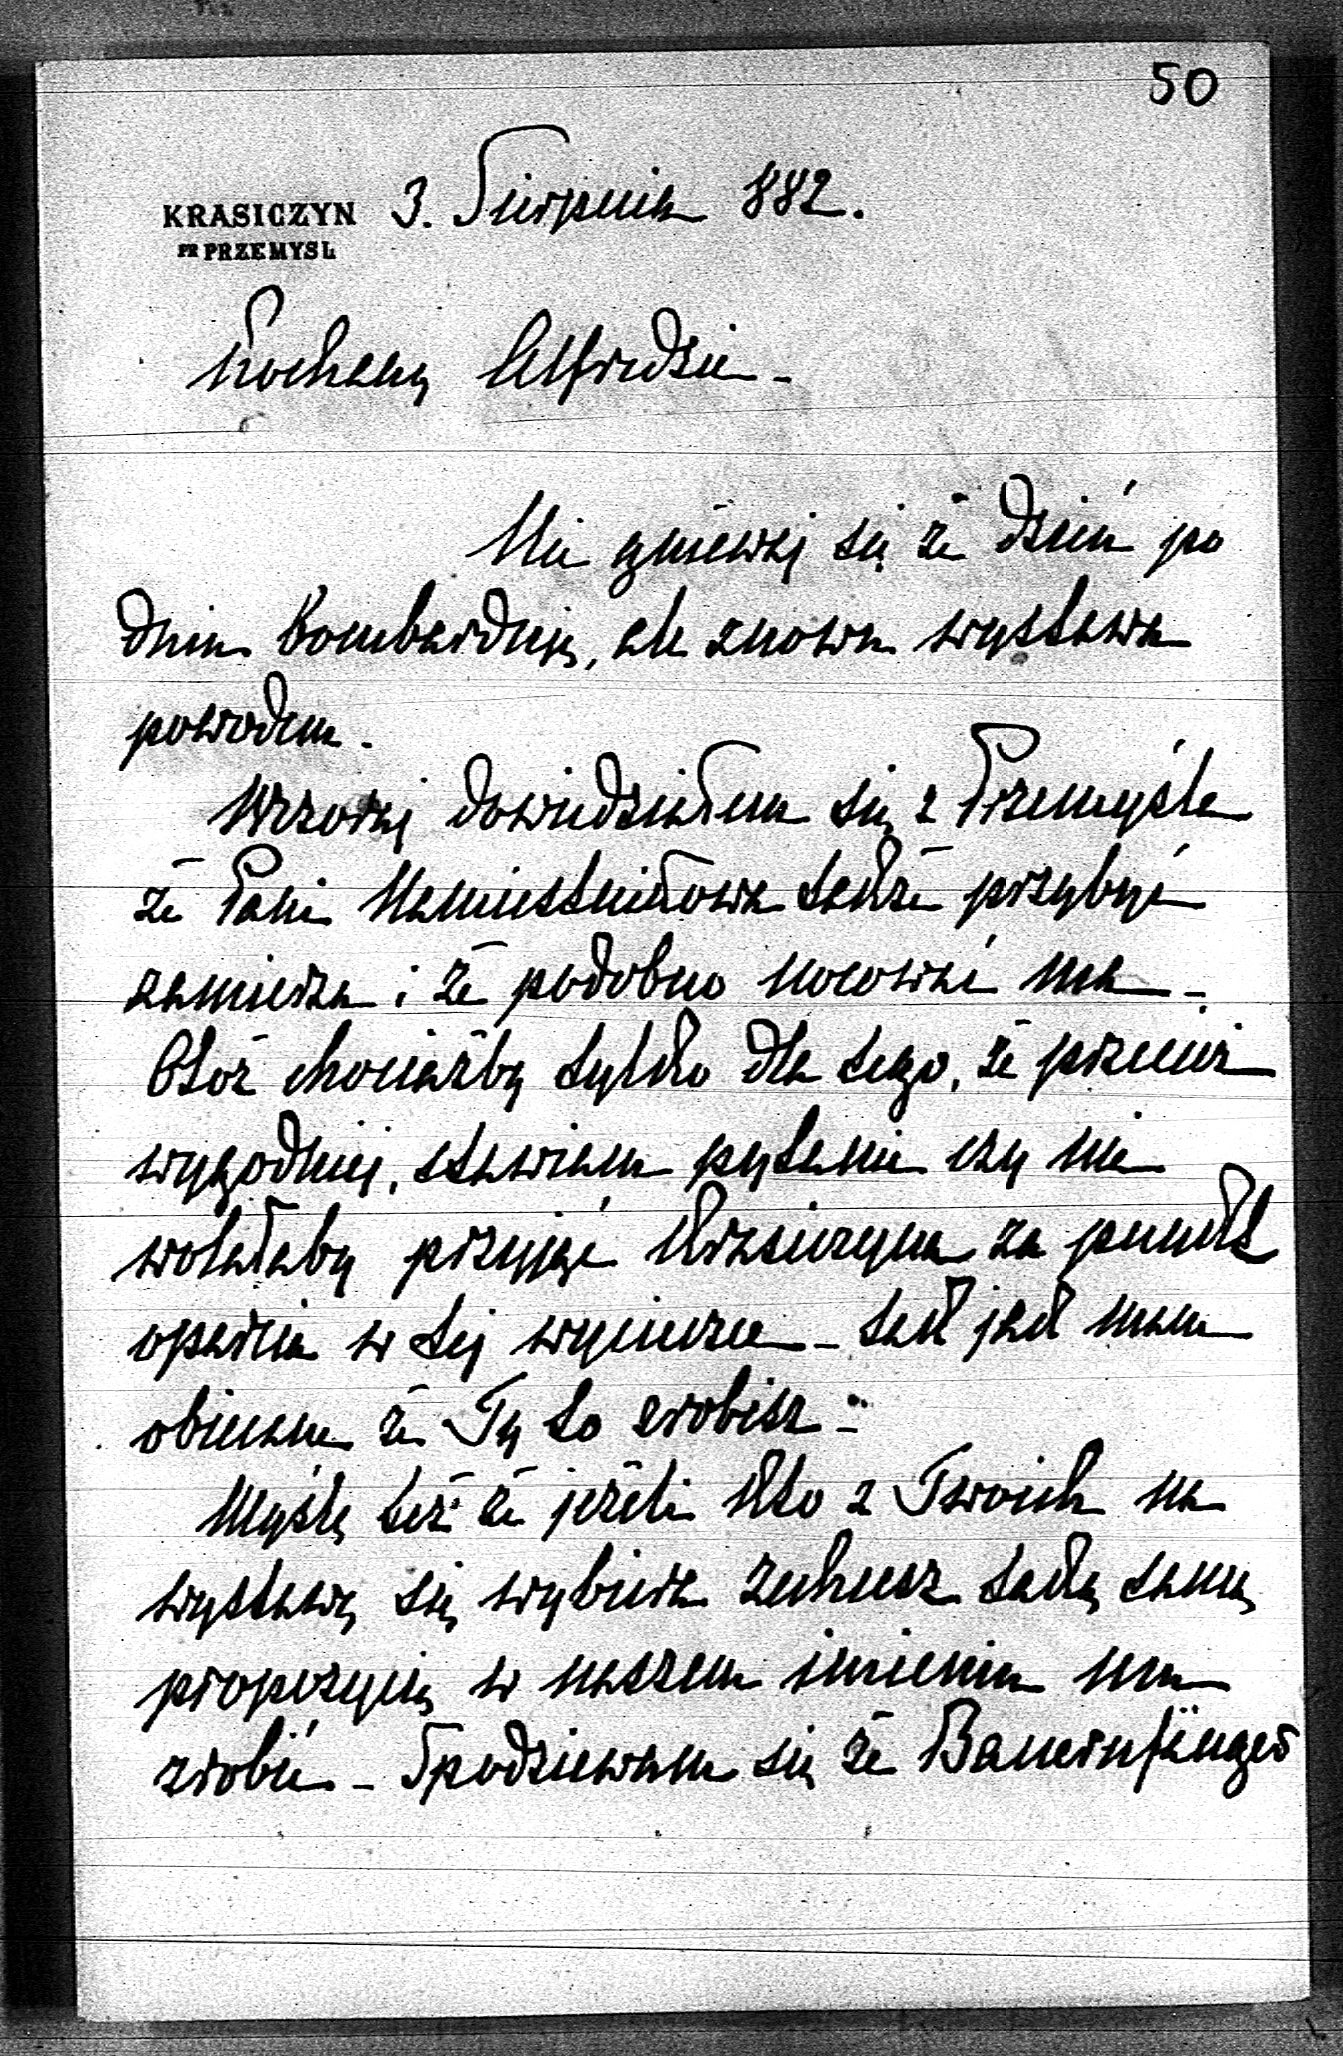 50
KRASICZYN 3. Sierpnia 882.
PR PRZEMYSL
Kochany Alfredzie -
Nie gniewaj się że dzień po
dniu bombarduję, ale znowu wystawa
powodem.
Wczoraj dowiedziałem się z Przemyśla
że Pani Namiestnikowa także przybyć
zamierza i że podobno nocować ma -
Otóż chociażby tylko dla tego, że przecież
wygodniej, stawiam pytanie czy nie
wolałaby przyjąć Krasiczyna za punkt
oparcia w tej wycieczce - tak jak mam
obiecane że Ty to zrobisz -
Myślę też że jeżeli kto z Twoich na
wystawę się wybiera zechcesz taką samą
propozycię w naszem imieniu mu
zrobić - Spodziewam się że Bauernfänger